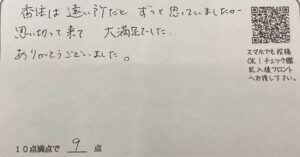 香住は遠い所だと ずっと思っていましたが
思い切って来て 大満足でした
ありがとうございました。
スマホでも投稿
OK！チェック欄
記入後フロント
へお渡し下さい。
10点満点で 9 点